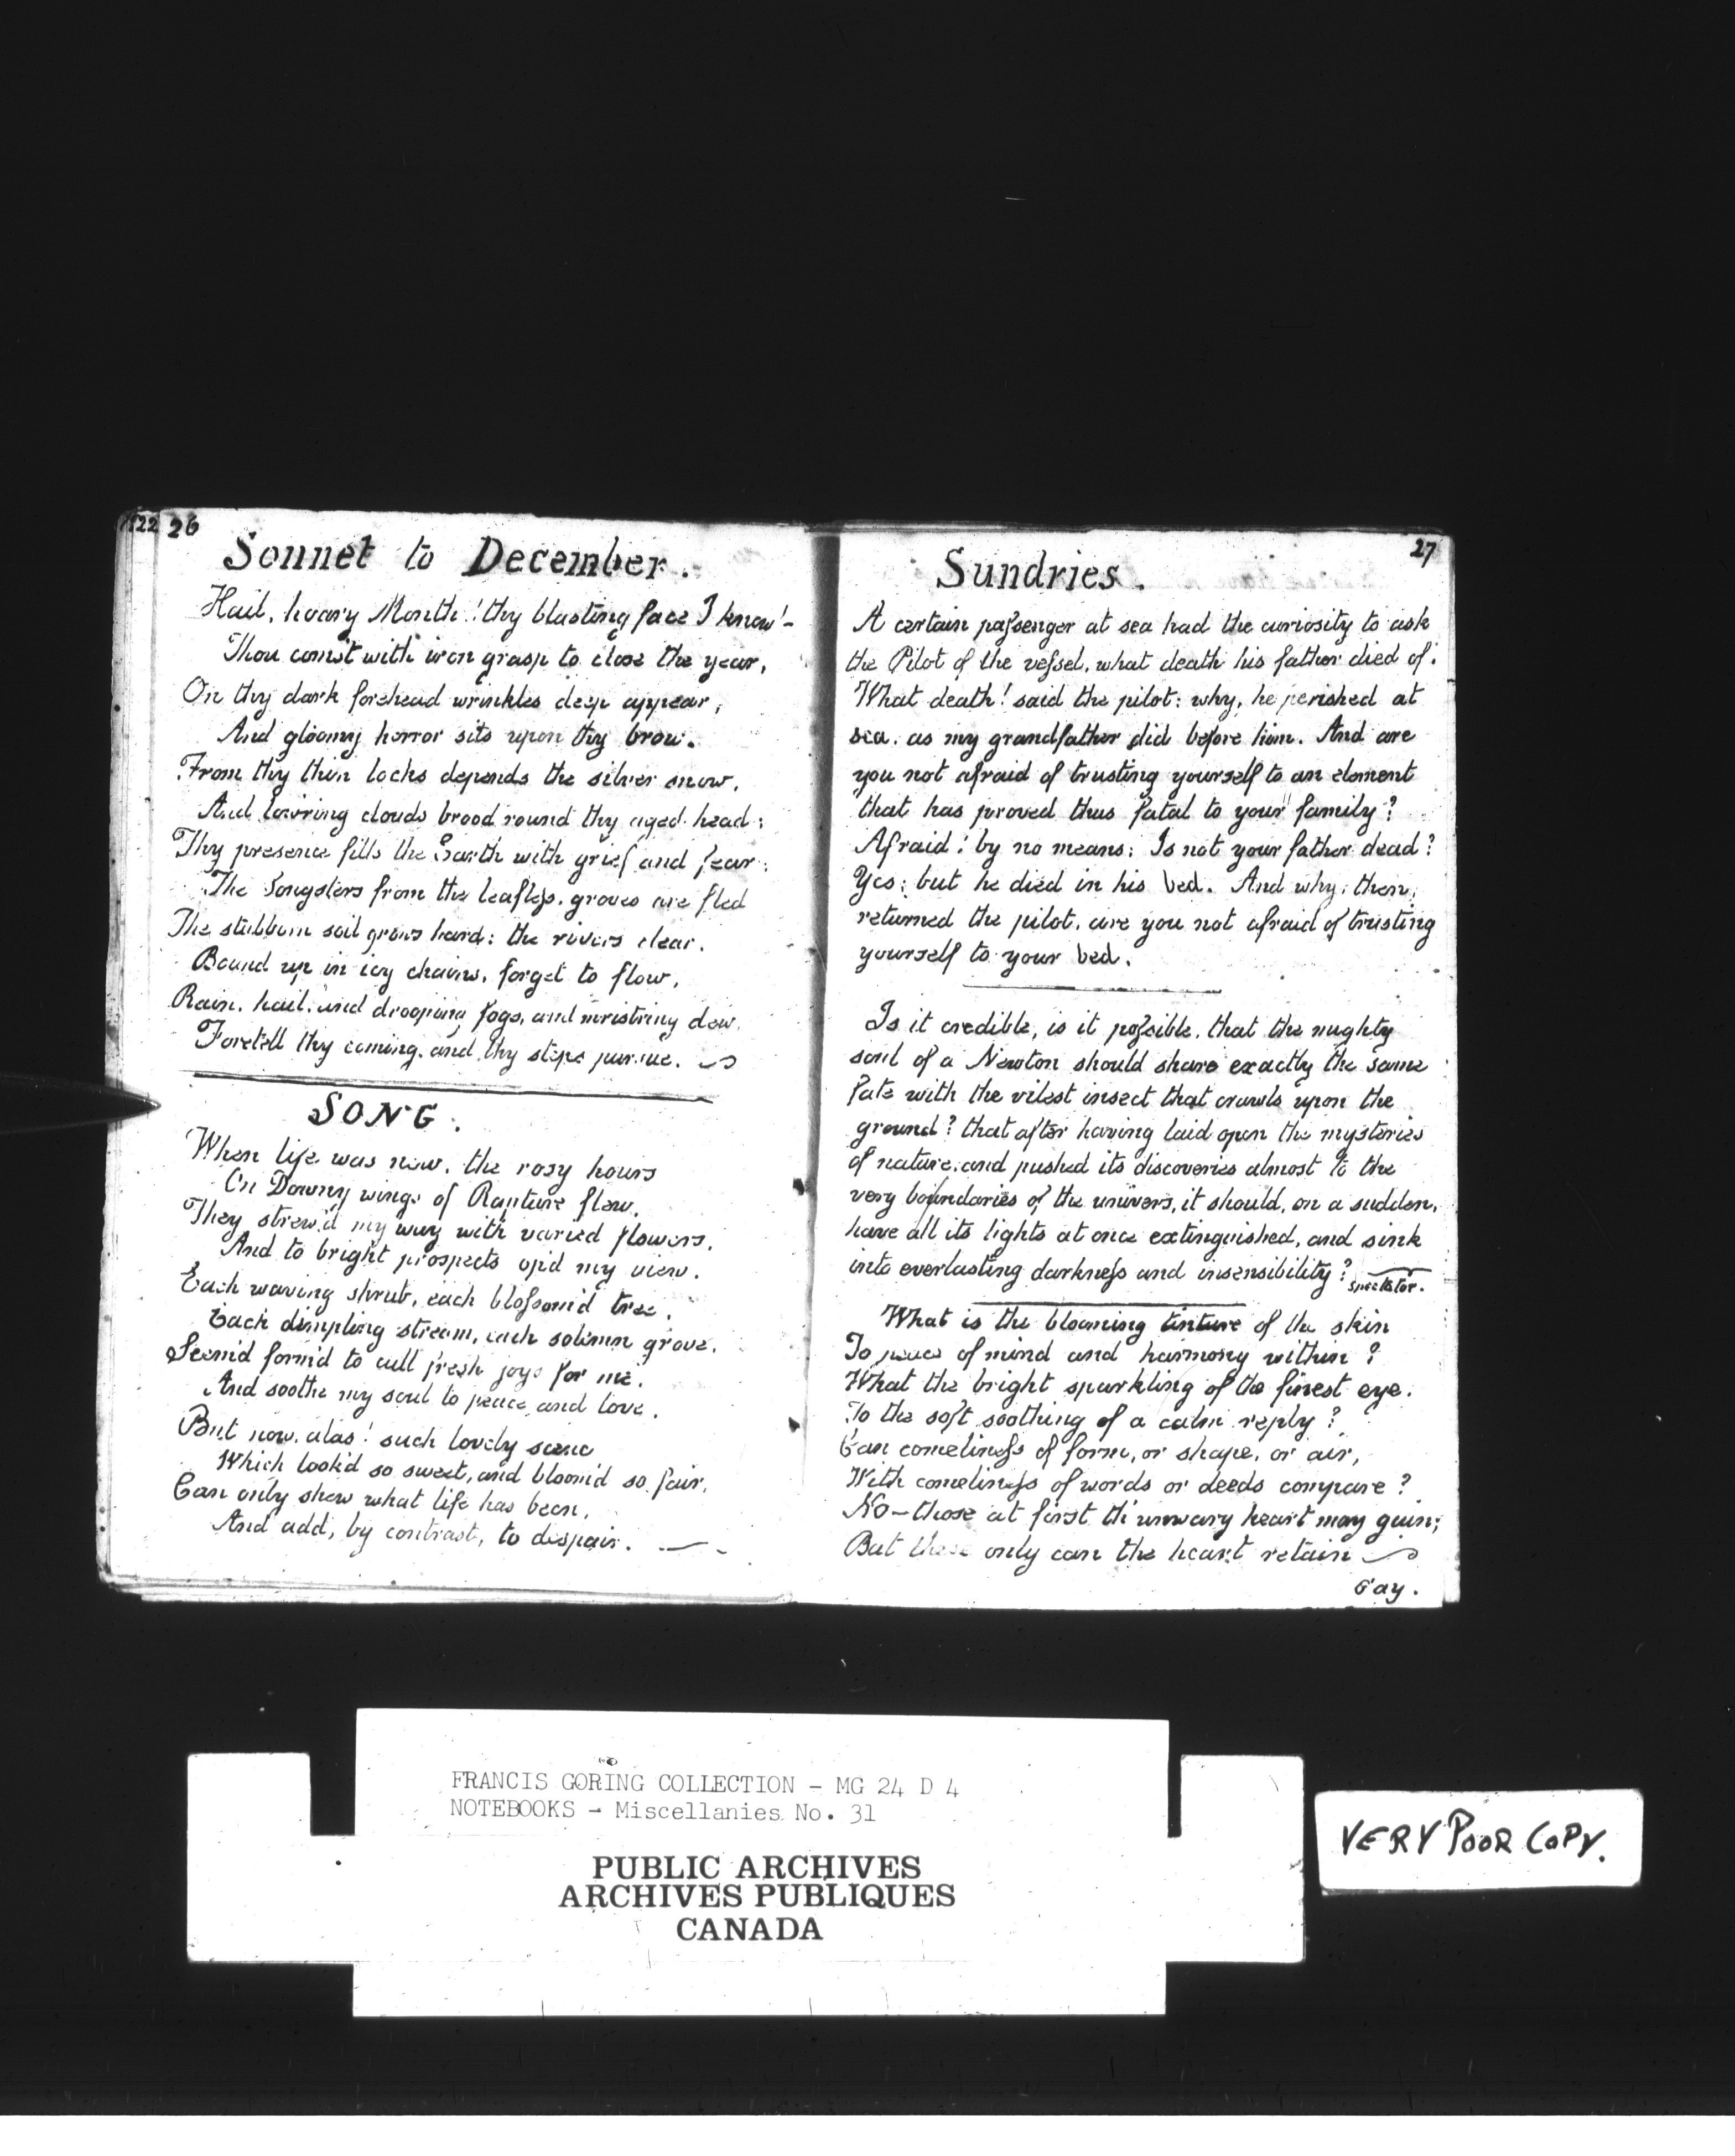 1822 26
Sonnet to December.
Hail, hoary Month! thy blasting face I know! -
Thou com'st with iron grasp to close the year,
On thy dark forehead wrinkles deep appear,
And gloomy horror sits upon thy brow.
From thy thin locks depends the silver snow,
And low'ring clouds brood round thy aged head;
Thy presence fills the Earth with grief and fear:
The Songsters from the leafless groves are fled
The stubborn soil grows hard: the rivers clear,
Bound up in icy chains, forget to flow,
Rain, hail, and drooping fogs, and mristring dew,
Foretell thy coming, and thy steps pursue.
SONG.
When life was new, the rosy hours
On Downy wings of Rapture flew,
They strew'd my way with varied flowers,
And to bright prospects op'd my view.
Each waving shrub, each blossom'd tree,
Each dimpling stream, each solemn grove,
Seem'd form'd to cull fresh joys for me,
And soothe my soul to peace and love.
But now, alas! such lovely scene
Which look'd so sweet, and bloom'd so fair,
Can only shew what life has been,
And add, by contrast, to despair.
27
Sundries.
A certain passenger at sea had the curiosity to ask
the Pilot of the vessel, what death his father died of.
What death! said the pilot: why, he perished at
sea, as my grandfather did before him. And are
you not afraid of trusting yourself to an element
that has proved thus fatal to your family?
Afraid! by no means: Is not your father dead?
Yes; but he died in his bed. And why, then,
returned the pilot, are you not afraid of trusting
yourself to your bed.
Is it credible, is it possible, that the mighty
soul of a Newton should share exactly the same
fate with the vilest insect that crawls upon the
ground? that after having laid open the mysteries
of nature, and pushed its discoveries almost to the
very boundaries of the univers, it should, on a sudden,
have all its lights at once extinguished, and sink
into everlasting darkness and insensibility? Spectator.
What is the blooming tinture of the skin
To peace of mind and harmony within?
What the bright sparkling of the finest eye.
To the soft soothing of a calm reply?
Can comeliness of form, or shape, or air,
With comeliness of words or deeds compare?
No - those at first th' unwary heart may gain;
But these only can the heart retain
Gay.
FRANCIS GORING COLLECTION - MG 24 D 4
NOTEBOOKS - Miscellanies No. 31
PUBLIC ARCHIVES
ARCHIVES PUBLIQUES
CANADA
VERY POOR COPY.